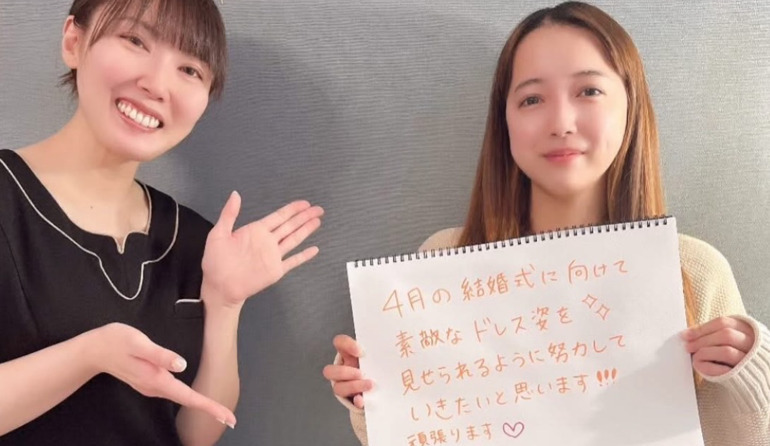 4月の結婚式に向けて
素敵なドレス姿を✧✧
見せられるように努力して
いきたいと思います!!!
頑張ります♡